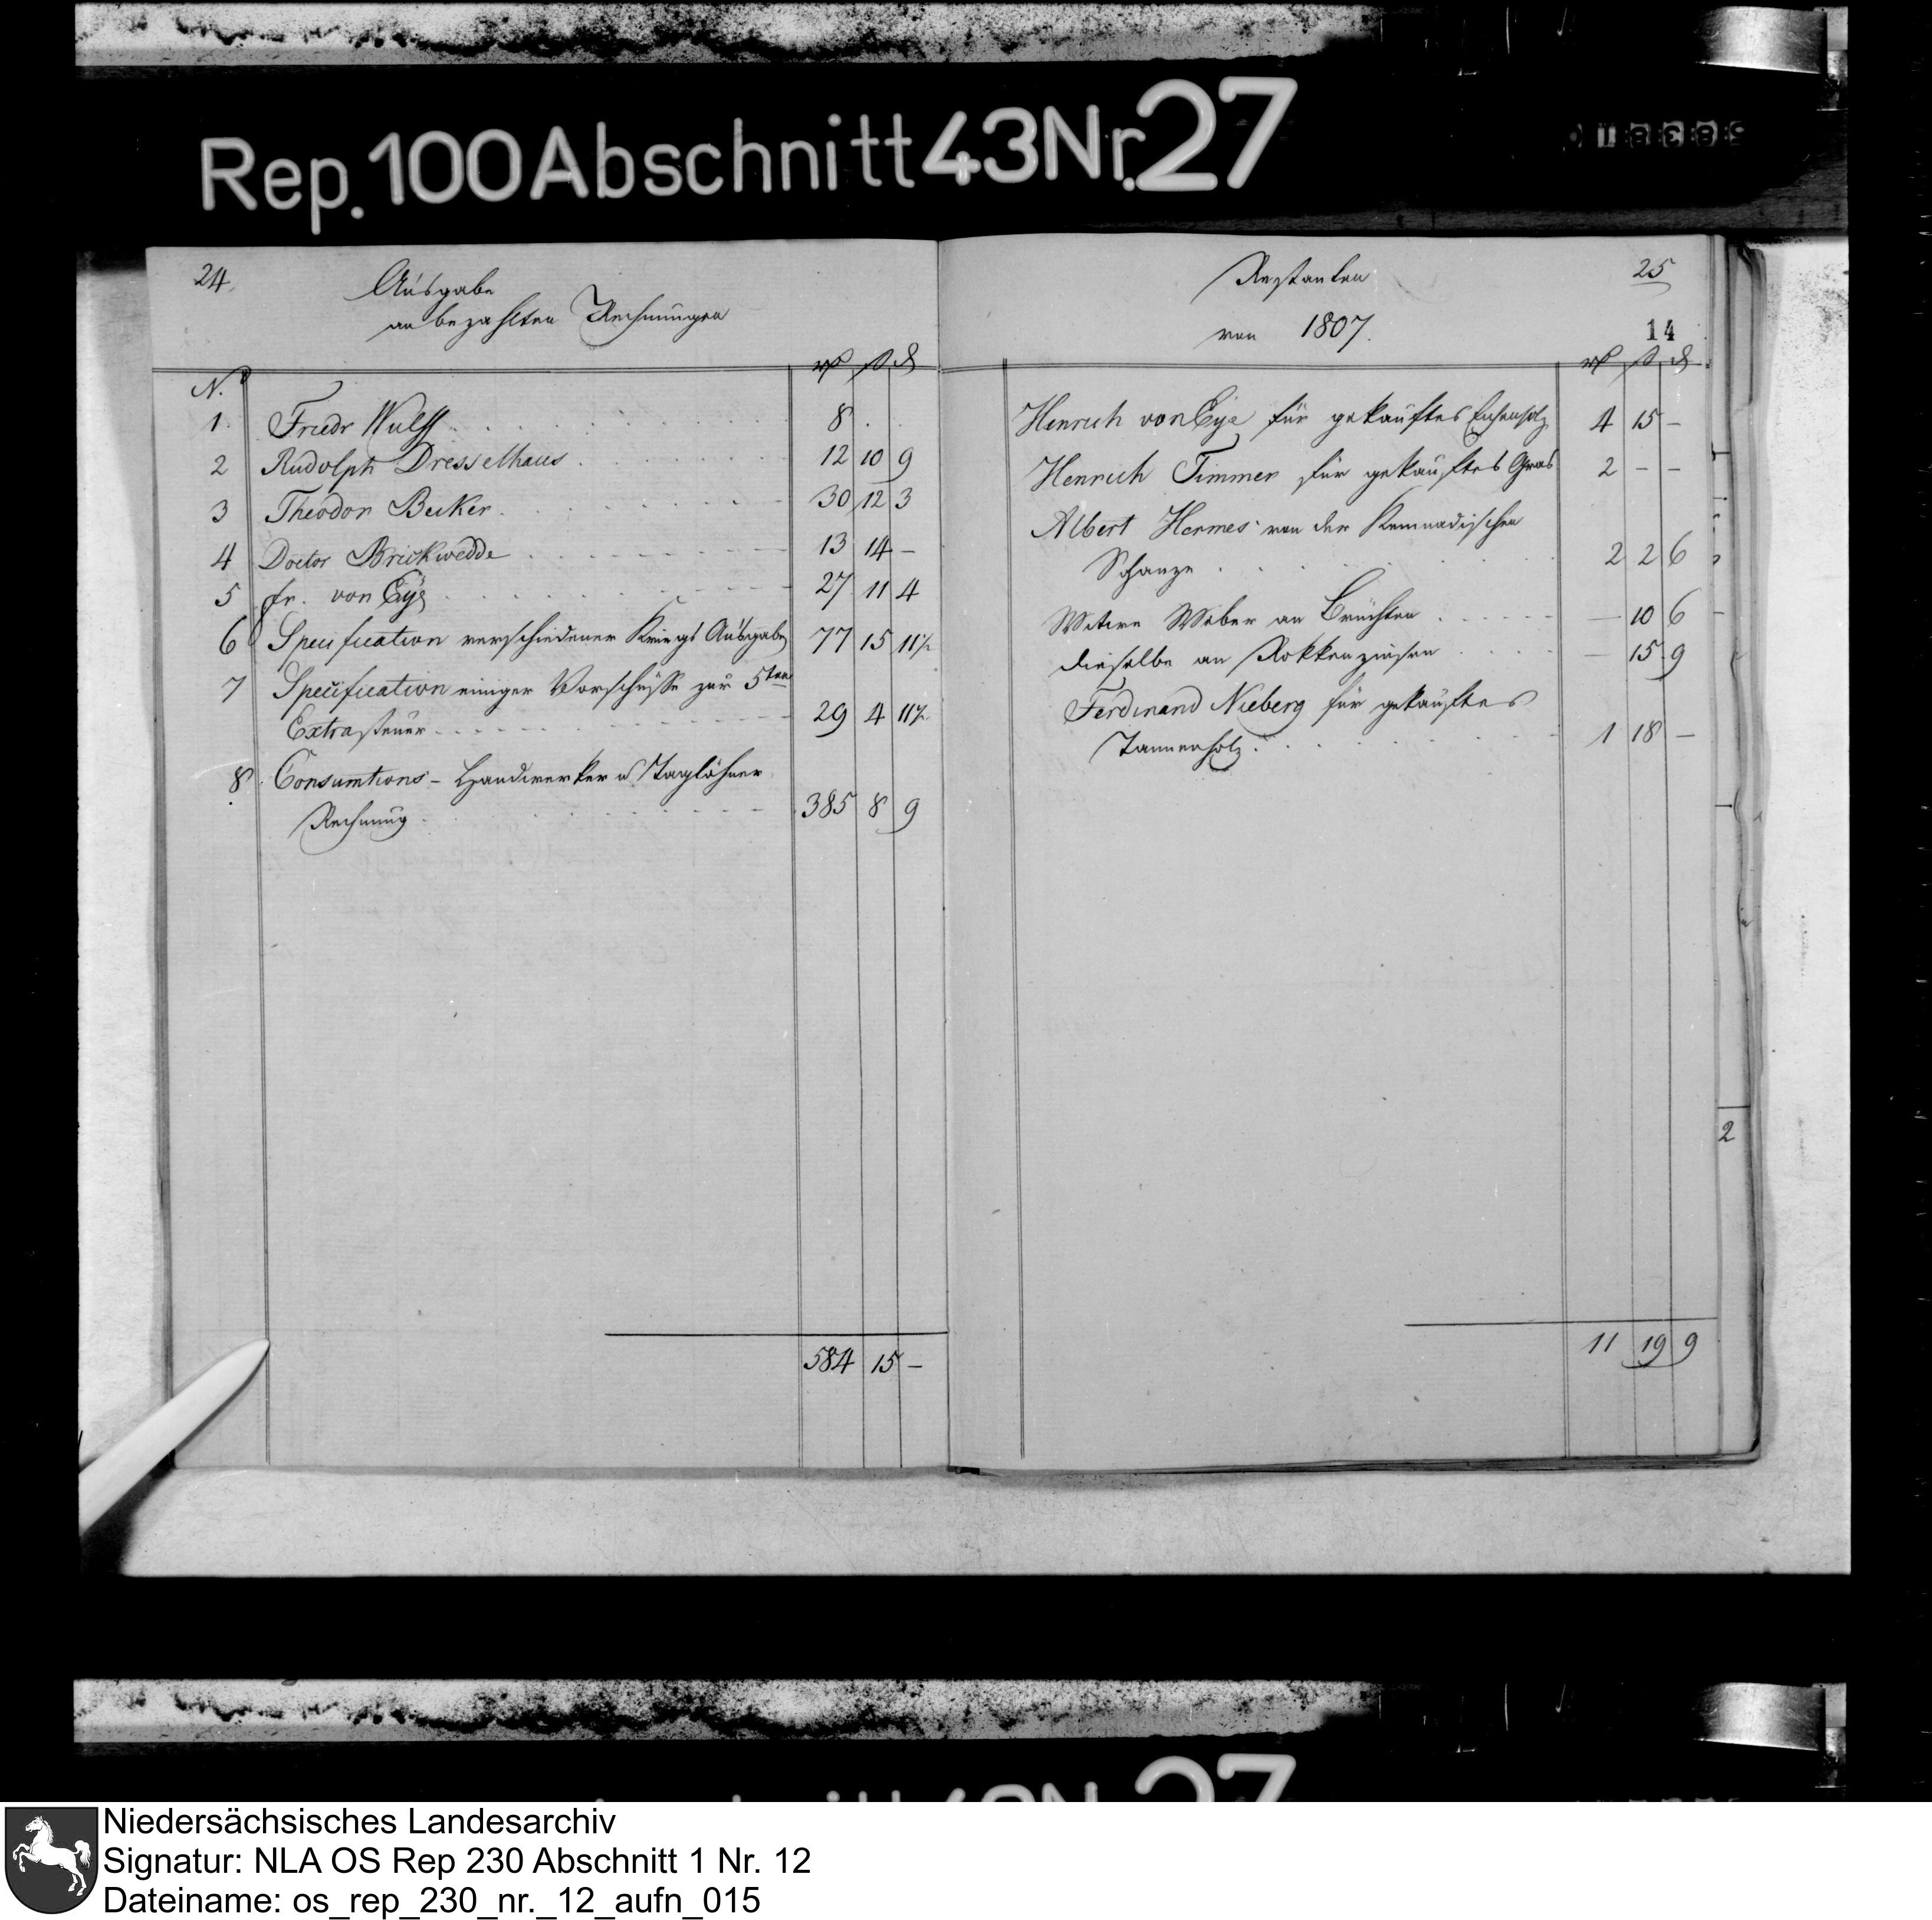 Rep. 100 Abschnitt 43 Nr. 27
24.
Ausgabe
an bezahlten Rechnungen
N.
1. Friedr Wulff 8 . .
2 Rudolph Dresselhaus 12 10 9
3 Theodor Becker 30 12 3
4 Doctor Brickwedde 13 14 –
5 fr. von Eye 27 11 4
6 Specification verschiedener Kriegs Ausgaben 77 15 11½
7 Specification einiger Vorschüsse zur 5ten
Extrasteuer 29 4 11½
8. Consumtions – Handwerker u Taglöhner
Rechnung 385 8 9
584 15 –
Restanten 25
von 1807. 14
Henrich von Eye für gekauftes Eichenholz 4 15 –
Henrich Timmer für gekauftes Gras 2 – –
Albert Hermes von der Kemnadischen
Schanze 2 2 6
Witwe Weber an Brüchten – 10 6
dieselbe an Rokkenzinsen – 15 9
Ferdinand Nieberg für gekauftes
Tannenholz 1 18 –
11 19 9
2
Niedersächsisches Landesarchiv
Signatur: NLA OS Rep 230 Abschnitt 1 Nr. 12
Dateiname: os_rep_230_nr._12_aufn_015